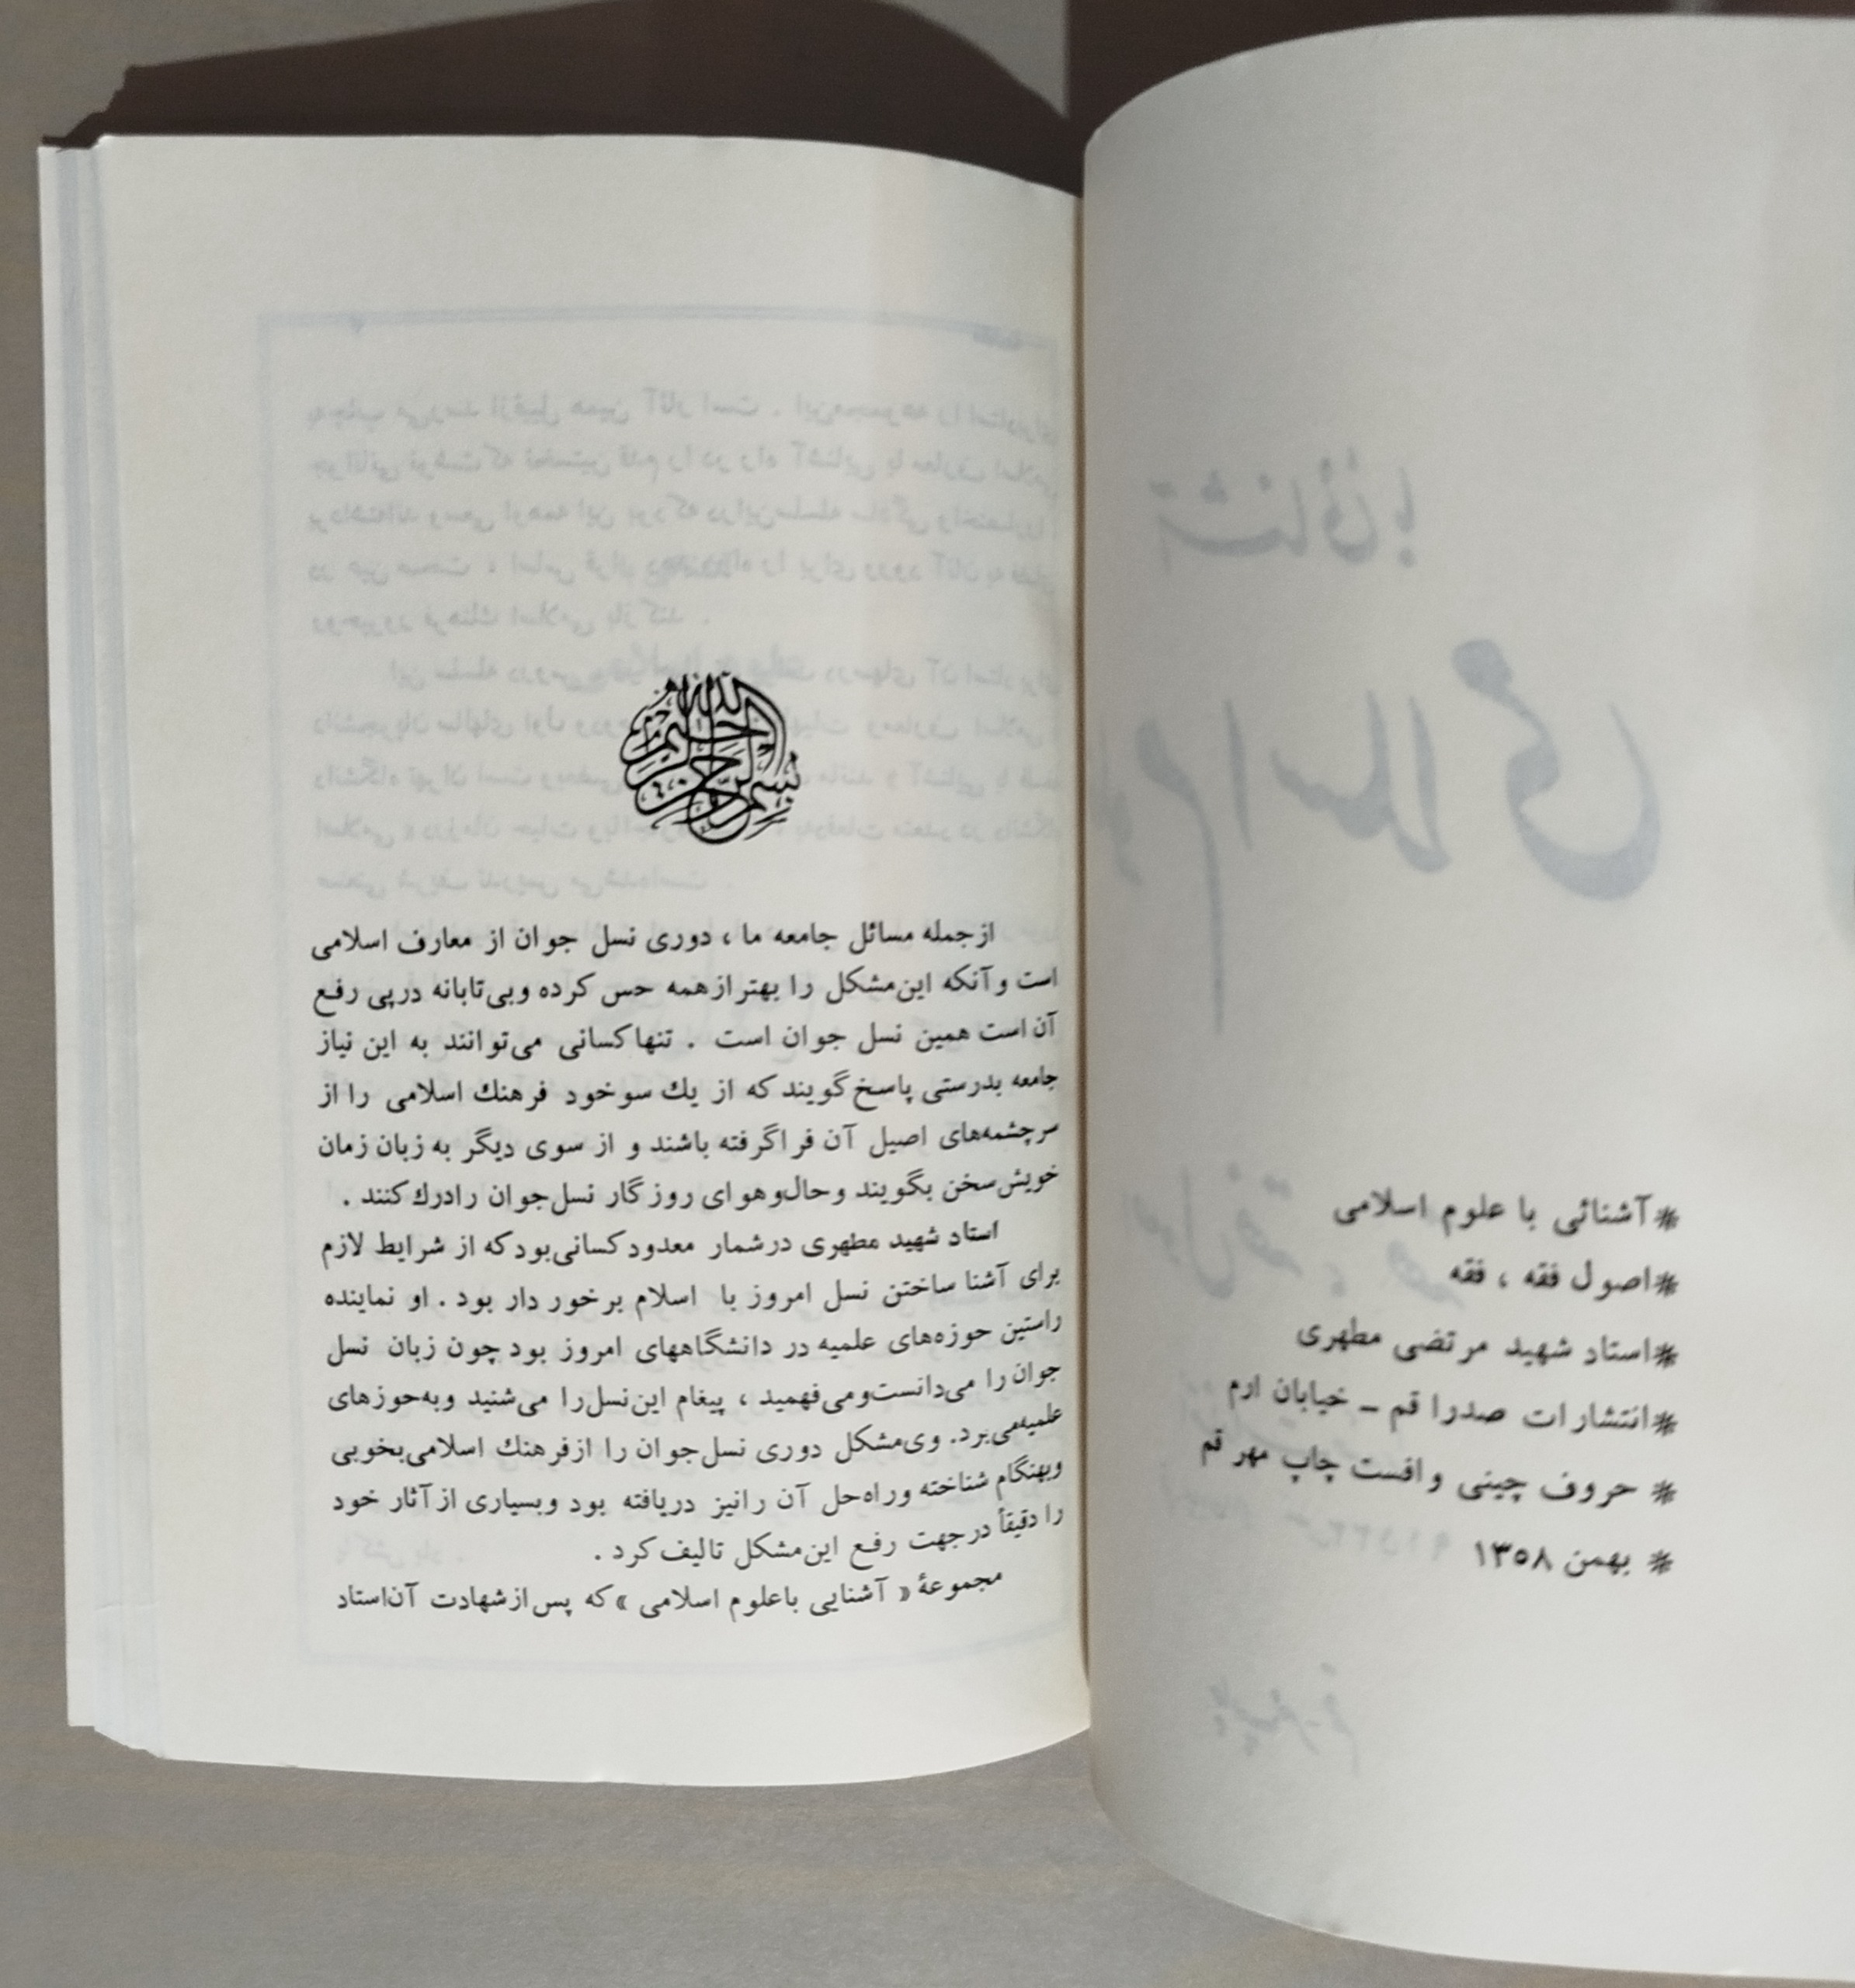 *آشنائی با علوم اسلامی
*اصول فقه ، فقه
*استاد شهید مرتضی مطهری
*انتشارات صدرا قم ـ خیابان ارم
* حروف چینی و افست چاپ مهر قم
* بهمن ۱۳۵۸
بسم الله الرحمن الرحیم
ازجمله مسائل جامعه ما ، دوری نسل جوان از معارف اسلامی
است و آنکه این‌مشکل را بهتر ازهمه حس کرده وبی‌تابانه درپی رفع
آن است همین نسل جوان است . تنها کسانی می‌توانند به این نیاز
جامعه بدرستی پاسخ گویند که از یك سو خود فرهنك اسلامی را از
سرچشمه‌های اصیل آن فراگرفته باشند و از سوی دیگر به زبان زمان
خویش‌سخن بگویند و حال‌و هوای روزگار نسل‌جوان رادرك کنند .
استاد شهید مطهری درشمار معدود کسانی‌بود که از شرایط لازم
برای آشنا ساختن نسل امروز با اسلام برخوردار بود . او نماینده
راستین حوزه‌های علمیه در دانشگاههای امروز بود چون زبان نسل
جوان را می‌دانست‌ومی‌فهمید ، پیغام این‌نسل‌را می‌شنید وبه‌حوزهای
علمیه‌می‌برد. وی‌مشکل دوری نسل‌جوان را ازفرهنك اسلامی‌بخوبی
وبهنگام شناخته وراه‌حل آن رانیز دریافته بود وبسیاری از آثار خود
را دقیقاً درجهت رفع این‌مشکل تالیف کرد .
مجموعهٔ « آشنایی باعلوم اسلامی » که پس‌ازشهادت آن‌استاد